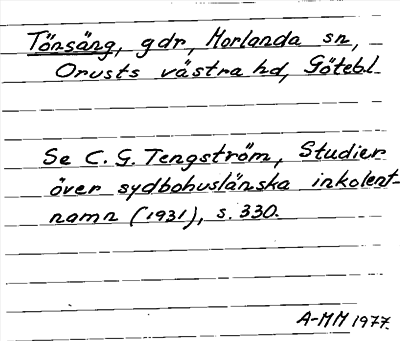 Tönsäng, gdr, Morlanda sn,
Orusts västra hd, Götebl
Se C. G. Tengström, Studier
över sydbohuslänska inkolent-
namn (1931), s. 330.
A-MM 1977.